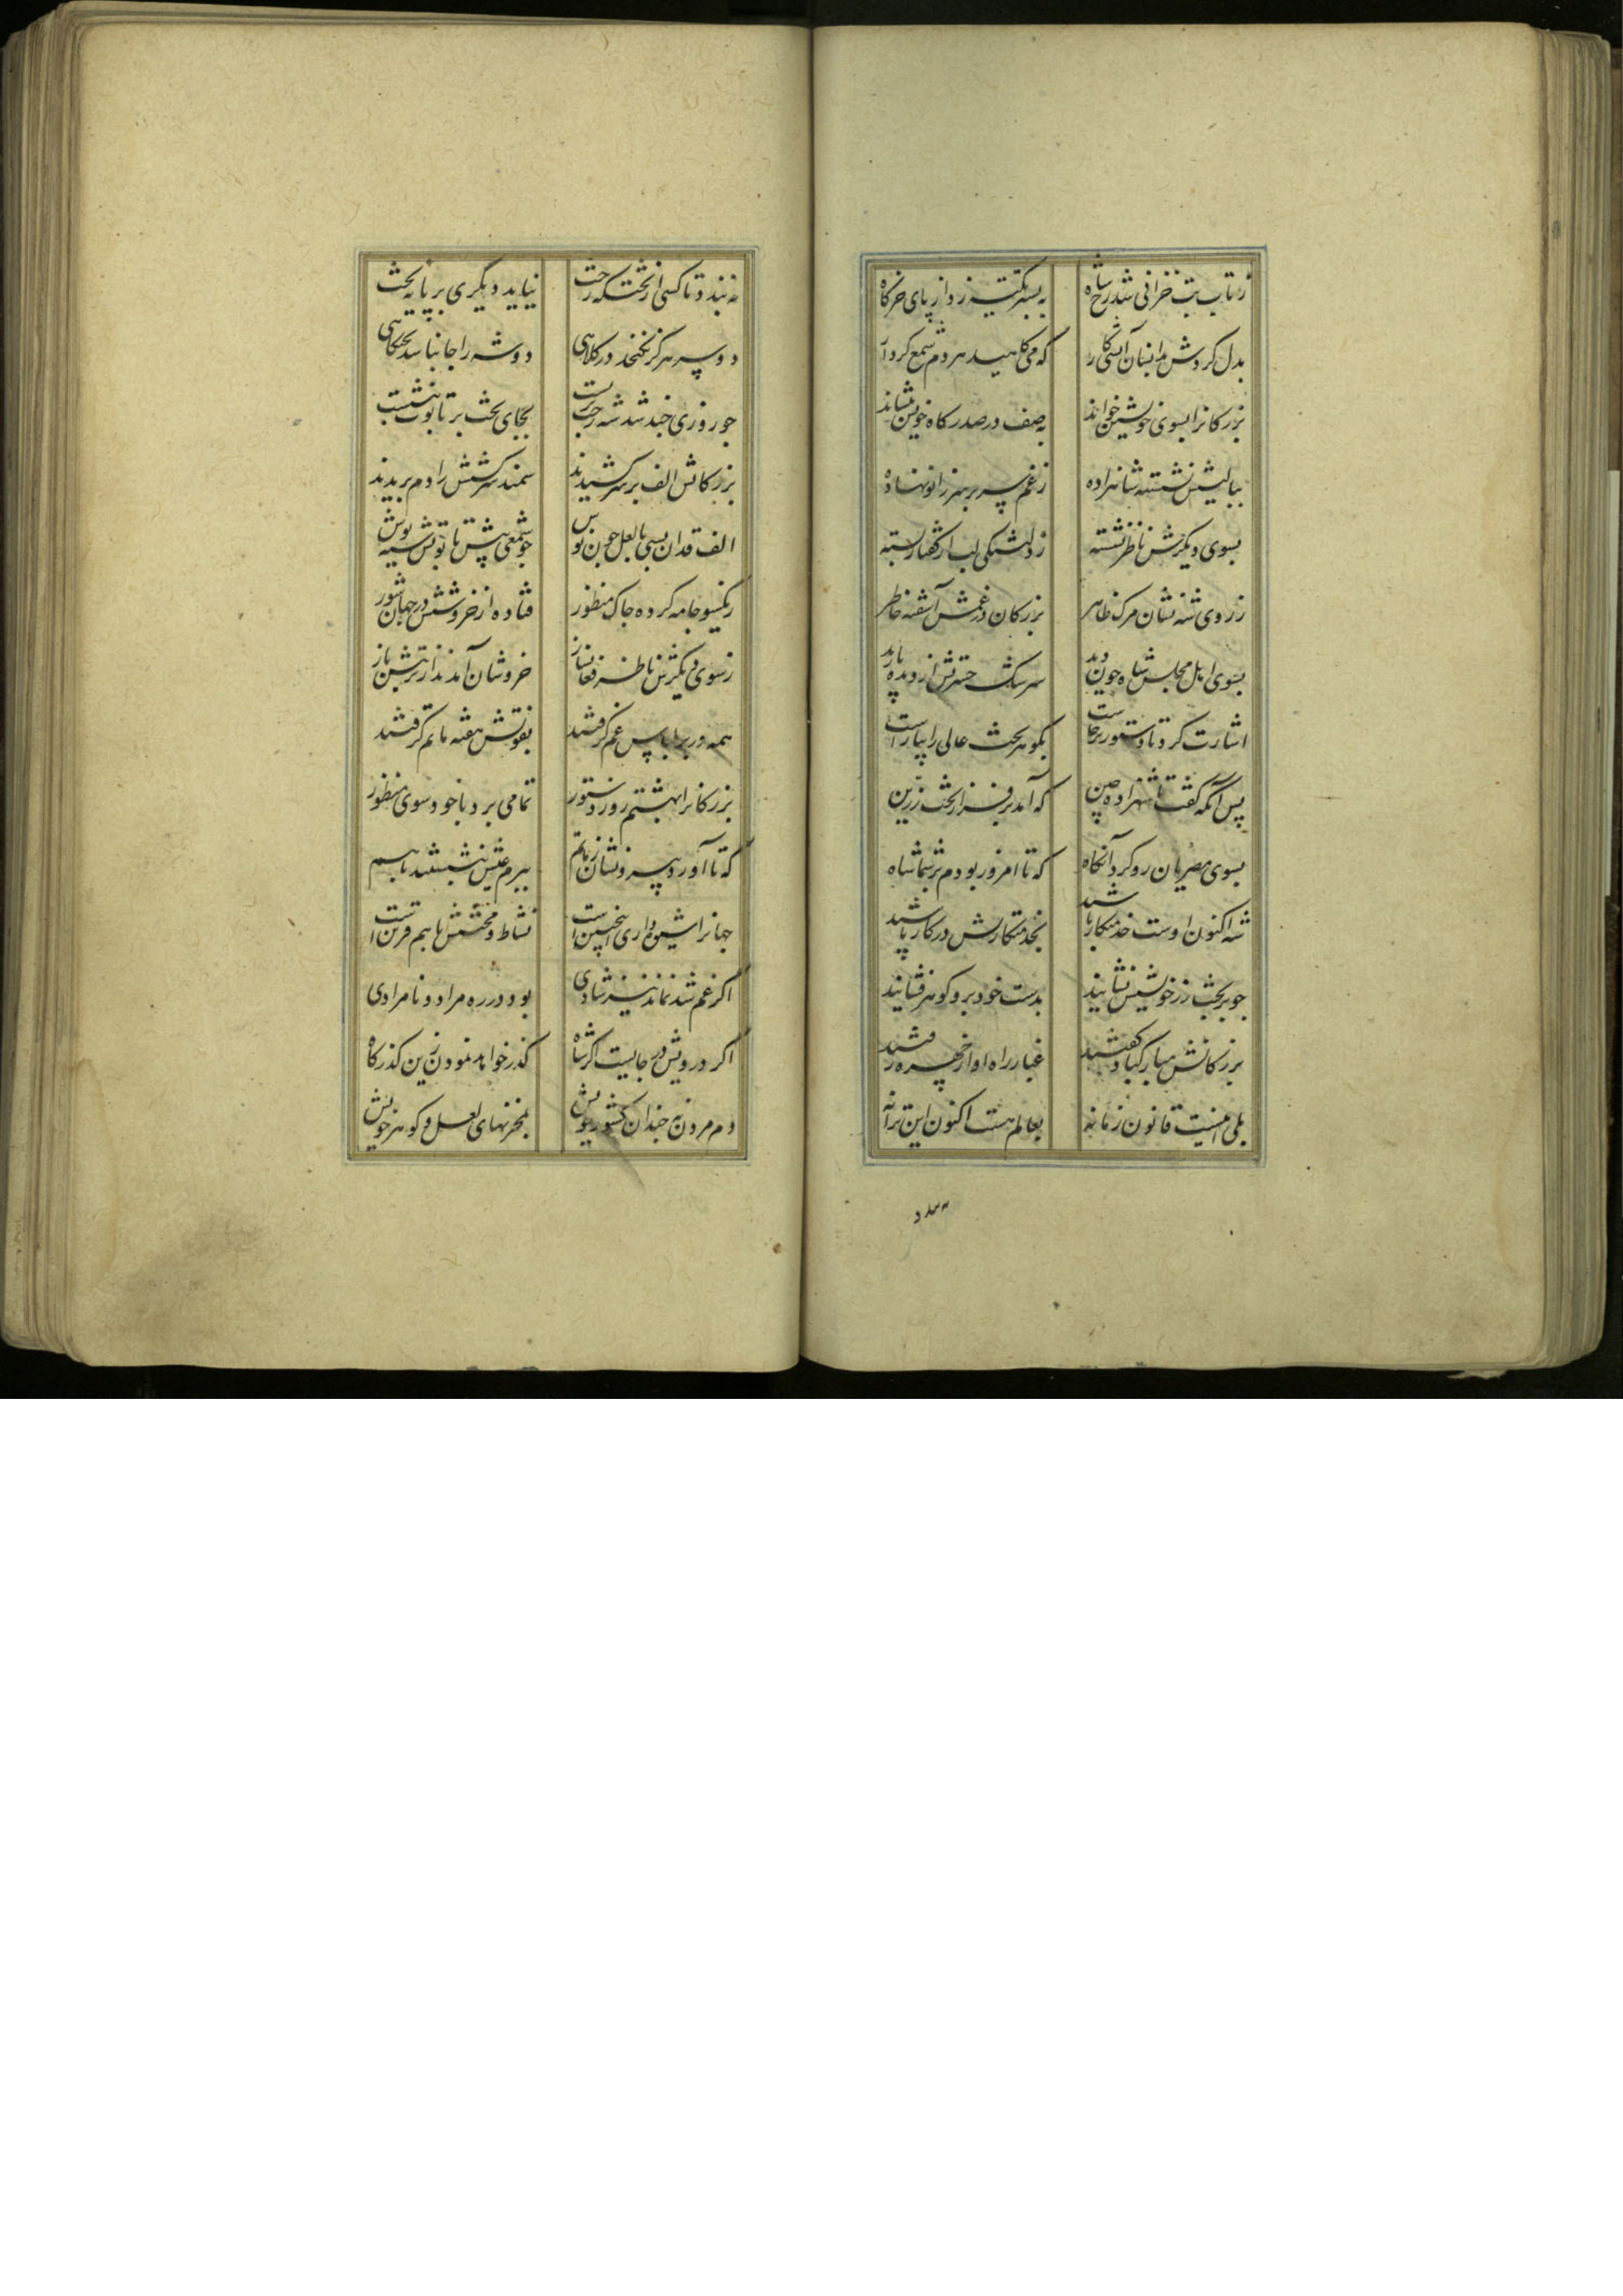 ز تاب تب خزانی شد رخ شاه
به بستر تکیه زد از پای خرگاه
بدل کردش بدانسان آتشی کار
که می‌کاهید هر دم شمع کردار
بزرکانرا بسوی خویشتن خواند
به صف در صدر کاه خویش بنشاند
ببالینش نشسته شاهزاده
ز غم سر بر سر زانو نهاده
بسوی دیکرش ناظر نشسته
ز دلتنکی لب از گفتار بسته
ز روی شه نشان مرک ظاهر
بزرکان در غمش آشفته خاطر
بسوی اهل مجلس شاه چون دید
سرشک حسرتش از دیده بارید
اشارت کرد تا دستور برخاست
بکوهر تخت عالی را بیاراست
پس آنکه گفت تا شهزاده چین
که آمد بر فراز تخت زرین
بسوی مصریان رو کرد آنکاه
که تا امروز بودم بر شما شاه
شه اکنون اوست خدمتکار باشید
بخدمتکاریش در کار باشید
چو بر تخت زر خویشش نشانید
بدست خود برو کوهر فشانید
بزرکانش مبارکباد گفتند
غبار راه او از چهره رفتند
بلی اینست قانون زمانه
بعالم هست اکنون این ترانه
نبندد
نبندد تا کسی از تختکه رخت
نیاید دیگری بر پایه تخت
دو سر هرگز نکنجد در کلاهی
دو شه را جا نباشد تختگاهی
چو روزی چند شد شه رخت بربست
بجای تخت بر تابوت بنشست
بزرکانش الف بر سر کشیدند
سمند سرکشش را دم بریدند
الف قدان بسی با لعل چون نوش
چو شمعی پیش تابوتش سیه پوش
ز یکسو جامه کرده چاک منظور
فتاده از خروشش در جهان شور
ز سوی دیکرش ناظر فغان ساز
خروشان آمدند از تربتش باز
همه در بر لباس غم گرفتند
بفوتش هفته ماتم گرفتند
بزرکانرا بهشتم روز دستور
تمامی برد با خود سوی منظور
که تا آورد بیرونشان ز ماتم
ببزم عیش بنشستند با هم
جهانرا شیوه داری اینچنین است
نشاط و محنتش با هم قرین است
اگر غم شد نماند نیز شادی
بود در ره مراد و نامرادی
اگر درویش در جایست اگر شاه
گذر خواهد نمودن زین گذرگاه
دم مردن به چندان کشور خویش
بمخزنهای لعل و کوهر خویش